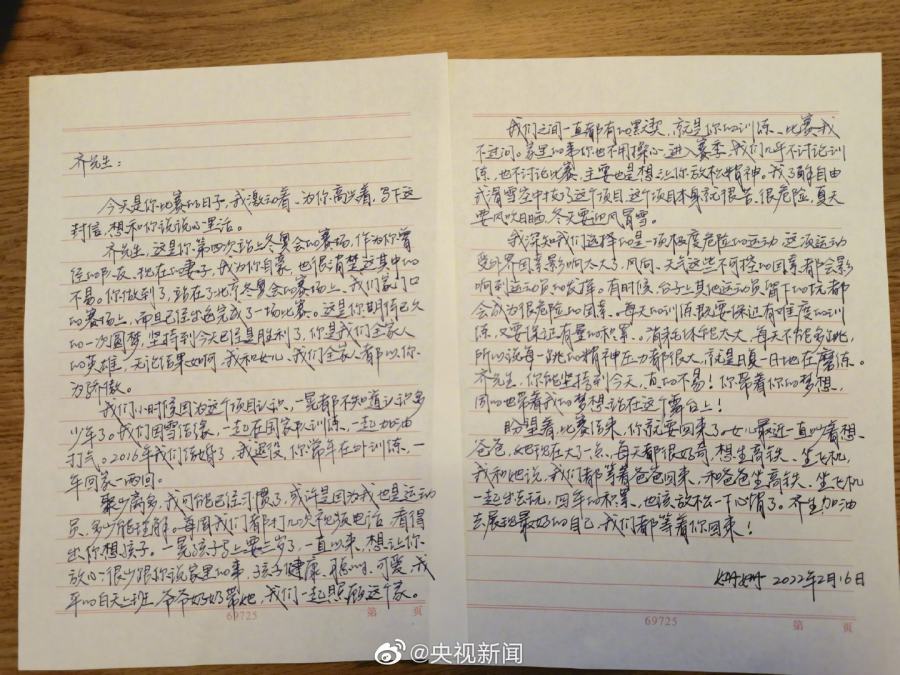 齐先生：
今天是你比赛的日子，我激动着、为你高兴着，写下这
封信，想和你说说心里话。
齐先生，这是你第四次站上冬奥会的赛场，作为你曾
经的队友、现在的妻子，我为你自豪，也很清楚这其中的
不易。你做到了，站在了北京冬奥会的赛场上、我们家门口
的赛场上，而且已经出色完成了一场比赛。这是你期待已久
的一次圆梦，坚持到今天已经是胜利了，你是我们全家人
的英雄，无论结果如何，我和女儿、我们全家人都以你
为骄傲。
我们小时候因为这个项目认识，一晃都不知道认识多
少年了。我们因雪结缘，一起在国家队训练、一起加油
打气。2016年我们结婚了，我退役，你常年在外训练，一
年回家一两回。
聚少离多，我可能已经习惯了，或许是因为我也是运动
员，多少能理解。每周我们都打几次视频电话，看得
出你想孩子。一晃孩子马上要三岁了，一直以来，想让你
放心，很少跟你说家里的事，孩子健康、聪明、可爱，我
平时白天上班，爷爷奶奶带她，我们一起照顾这个家。
69725
第 页
我们之间一直都有的默契，就是你的训练、比赛我
不过问。家里的事你也不用操心，进入赛季，我们几乎不讨论训
练，也不讨论比赛，主要也是想让你放松精神。我了解自由
式滑雪空中技巧这个项目，这个项目本身就很苦、很危险，夏天
要风吹日晒，冬天要迎风冒雪。
我深知我们选择的是一项极度危险的运动，这项运动
受外界因素影响太大了，风向、天气这些不可控的因素都会影
响到运动员的发挥。有时候，台子上其他运动员留下的坑都
会成为很危险的因素。每天的训练既要保证有难度的训
练，又要保证有量的积累。消耗体能太大，每天不能多跳，
所以说每一跳的精神压力都很大，就是日复一日地在磨练。
齐先生，你能坚持到今天，真的不易！你带着你的梦想，
同时也带着我的梦想站在这个舞台上！
盼望着，比赛结束，你就要回来了。女儿最近一直吵着想
爸爸，她现在大了一点，每天都很好奇，想坐高铁、坐飞机，
我和她说，我们都等着爸爸回来，和爸爸坐高铁、坐飞机
一起出去玩，四年的积累，也该放松一下心情了。齐先生加油
去展现最好的自己，我们都等着你回来！
2022年2月16日
69725
第 页
@央视新闻